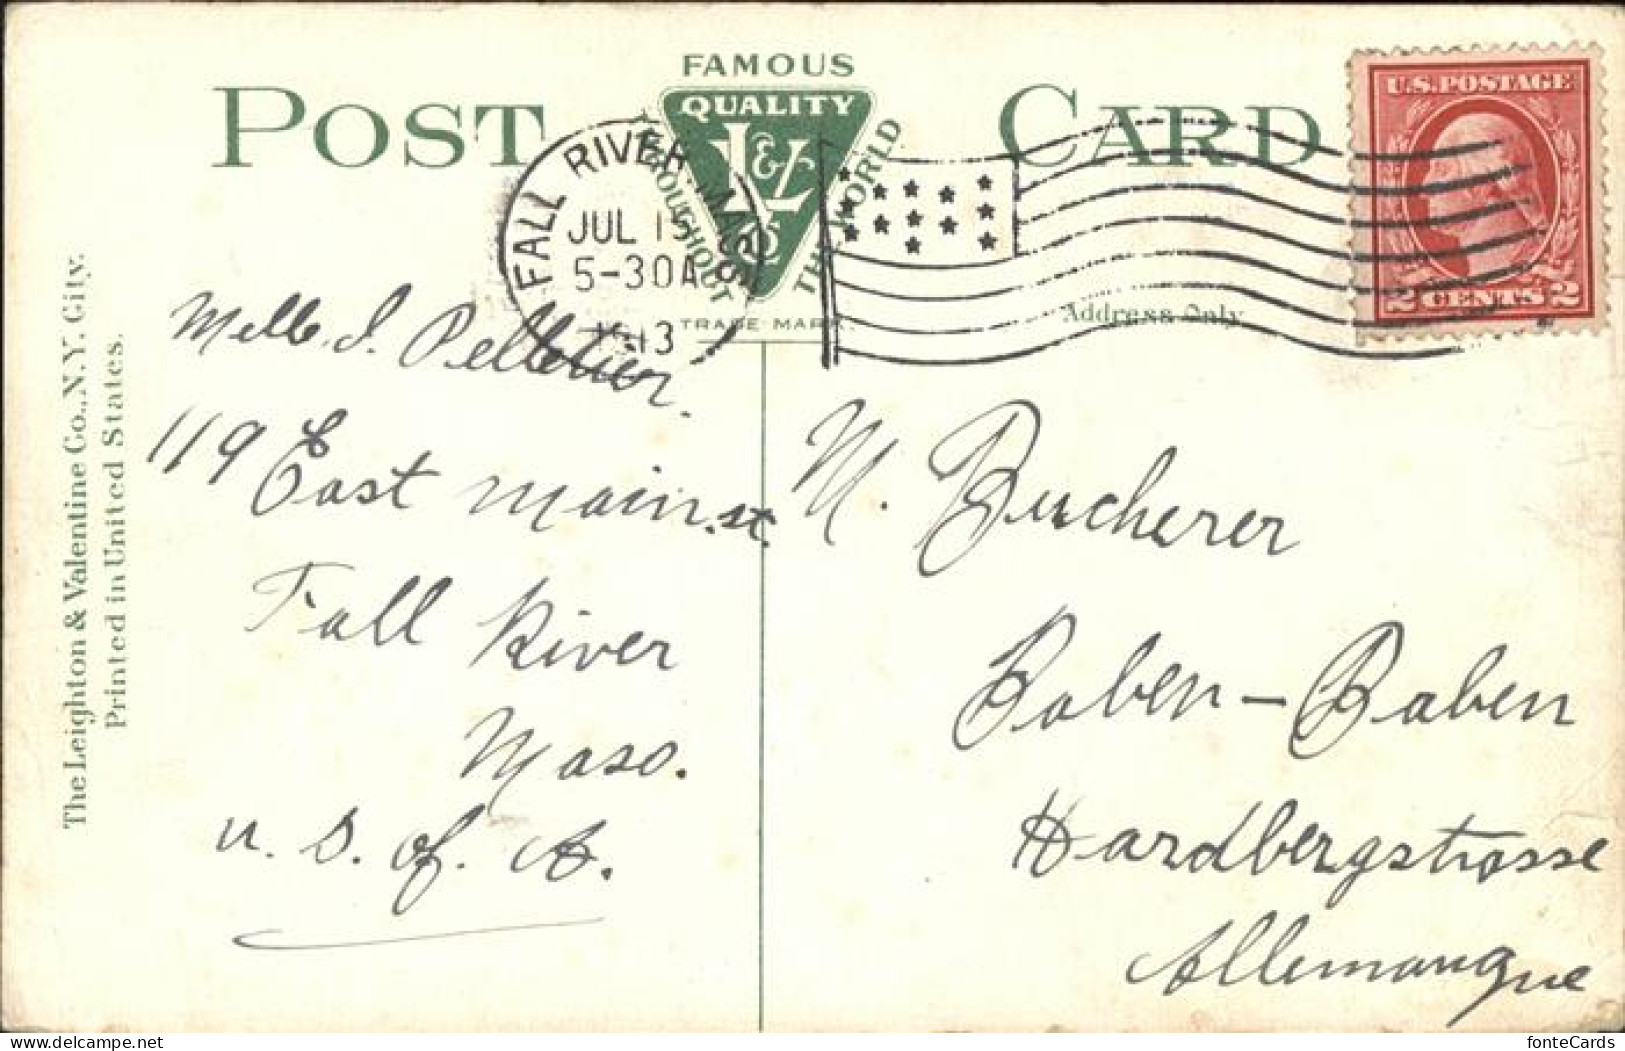 FAMOUS
POST CARD
QUALITY
L&V
THROUGHOUT THE WORLD
TRADE MARK.
FALL RIVER MASS
JUL 15
5-30A
1913
U.S. POSTAGE
2 CENTS 2
Address Only
The Leighton & Valentine Co., N.Y. City.
Printed in United States.
Melle. I. Pelletier.
119 East main. st.
Fall River
Mass.
U. S. of. A.
M. Bucherer
Baben-Baben
Hardbergstrasse
Allemangne
fonteCards